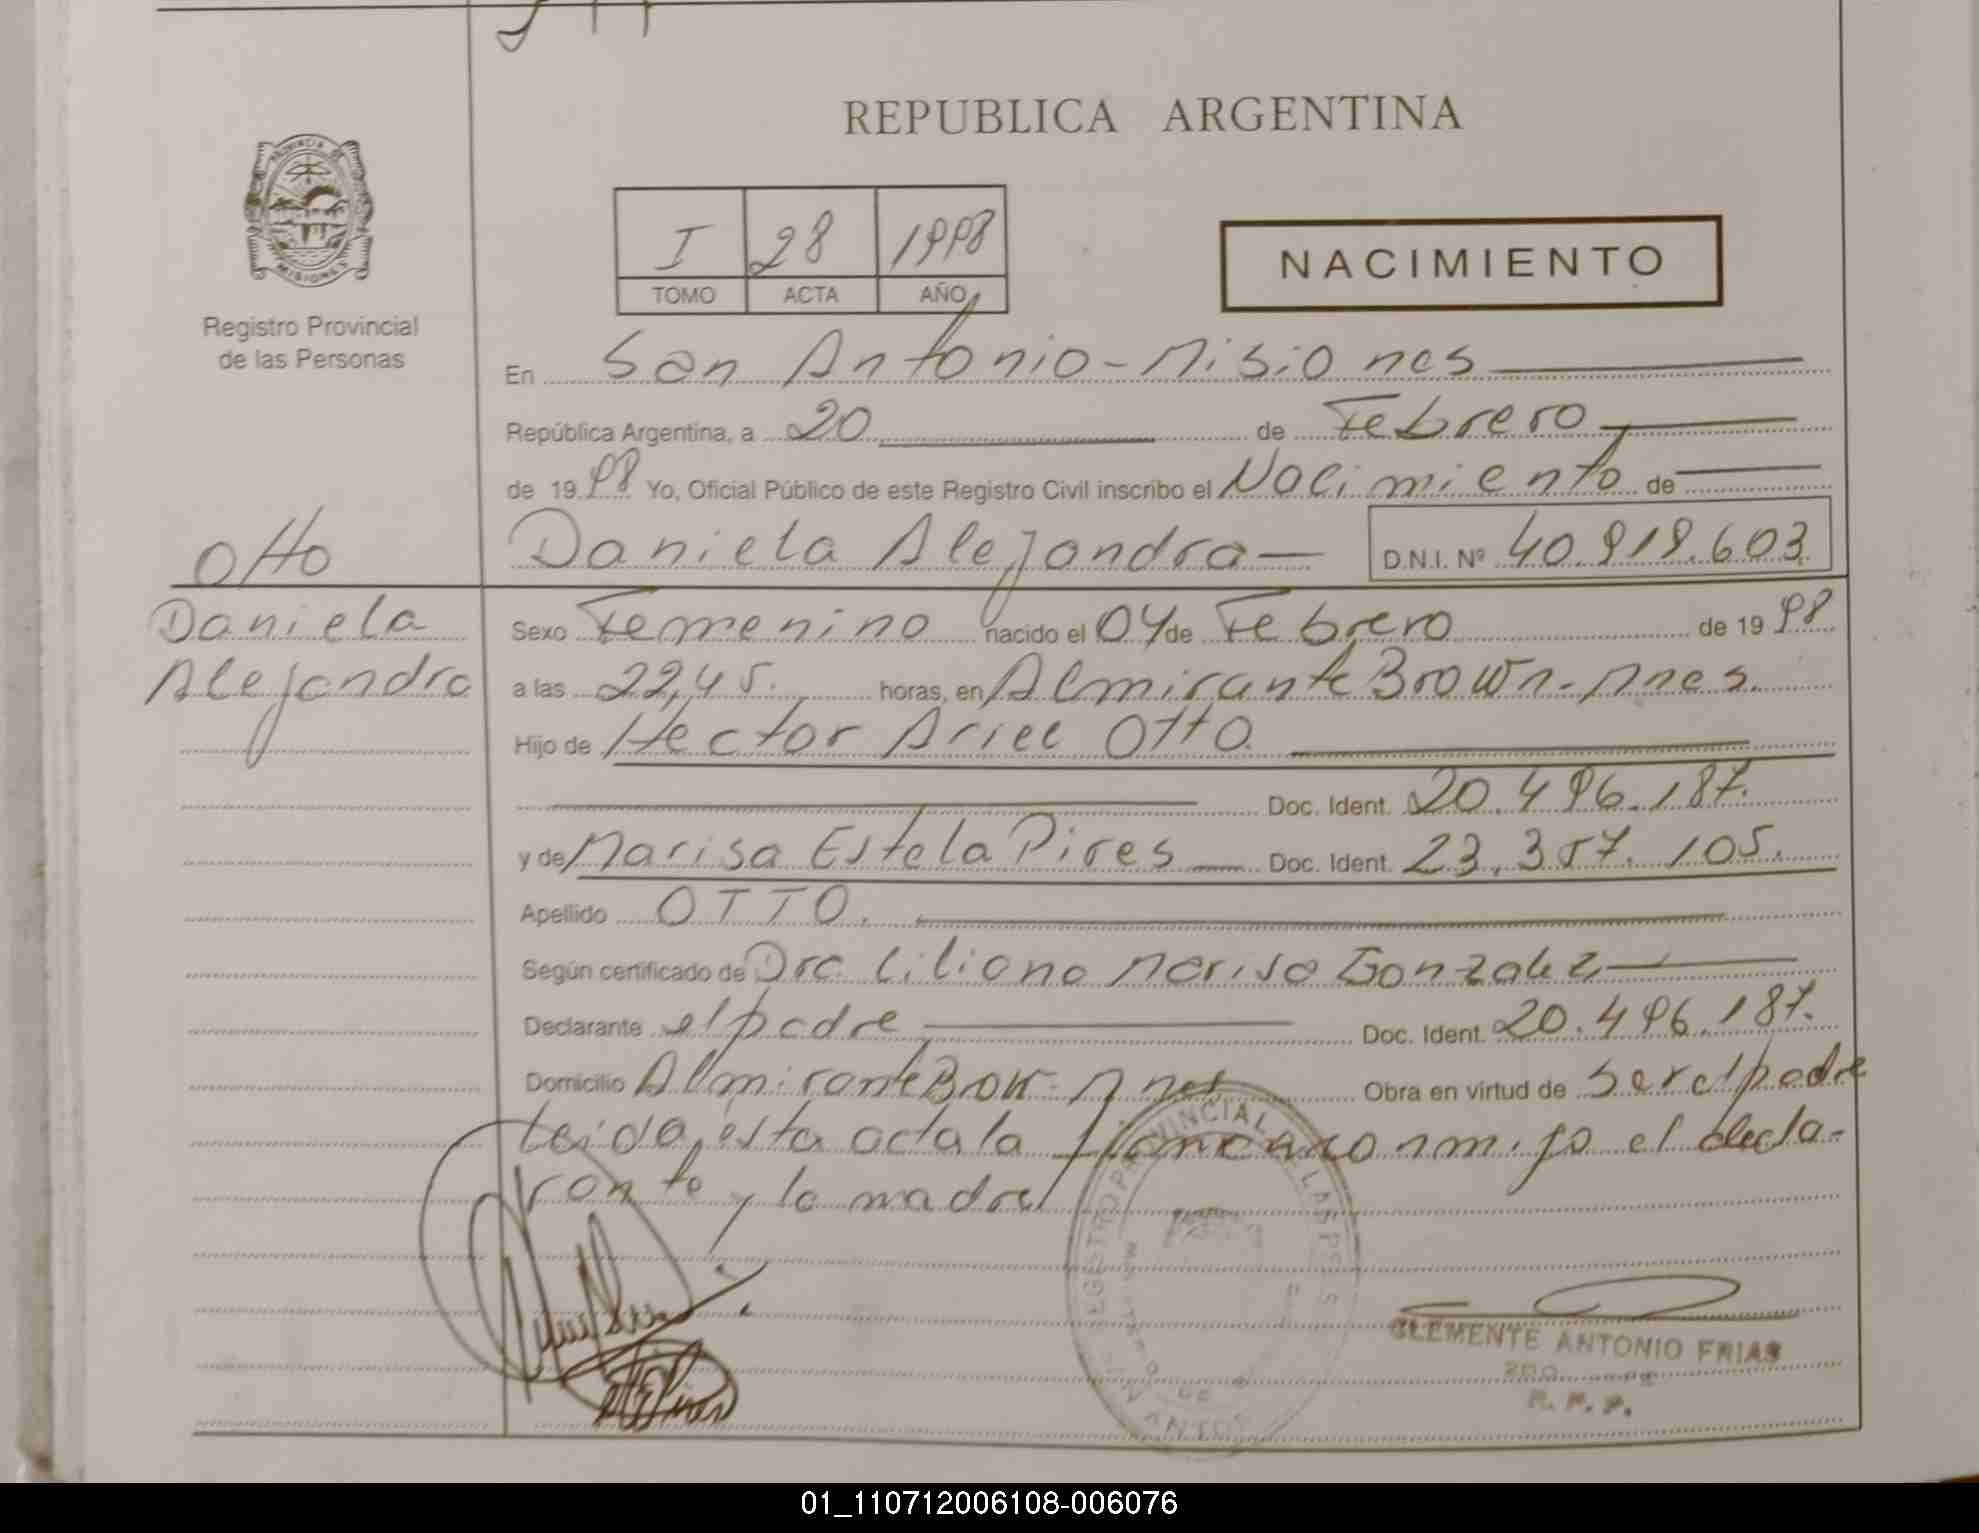 REPUBLICA ARGENTINA
PROVINCIA DE
MISIONES
Registro Provincial
de las Personas
I 28 1998
TOMO ACTA AÑO
NACIMIENTO
En San Antonio - Misiones
República Argentina, a 20 de Febrero
de 1998 Yo, Oficial Público de este Registro Civil inscribo el Nacimiento de
Otto
Daniela Alejandra D.N.I. Nº 40.919.603
Daniela
Alejandra
Sexo Femenino nacido el 04 de Febrero de 1998
a las 22,45. horas, en Almirante Brown - Mnes.
Hijo de Hector Ariel Otto.
Doc. Ident. 20.496.187.
y de Marisa Estela Pires Doc. Ident. 23.357.105.
Apellido OTTO.
Según certificado de Dra. Liliana Marisa Gonzalez
Declarante el padre Doc. Ident. 20.496.187.
Domicilio Almirante Brow - Mnes Obra en virtud de ser el padre
Leida esta acta la firman conmigo el decla-
rante y la madre
REGISTRO PROVINCIAL DE LAS PERS
CLEMENTE ANTONIO FRIAS
R. P. P.
01_110712006108-006076